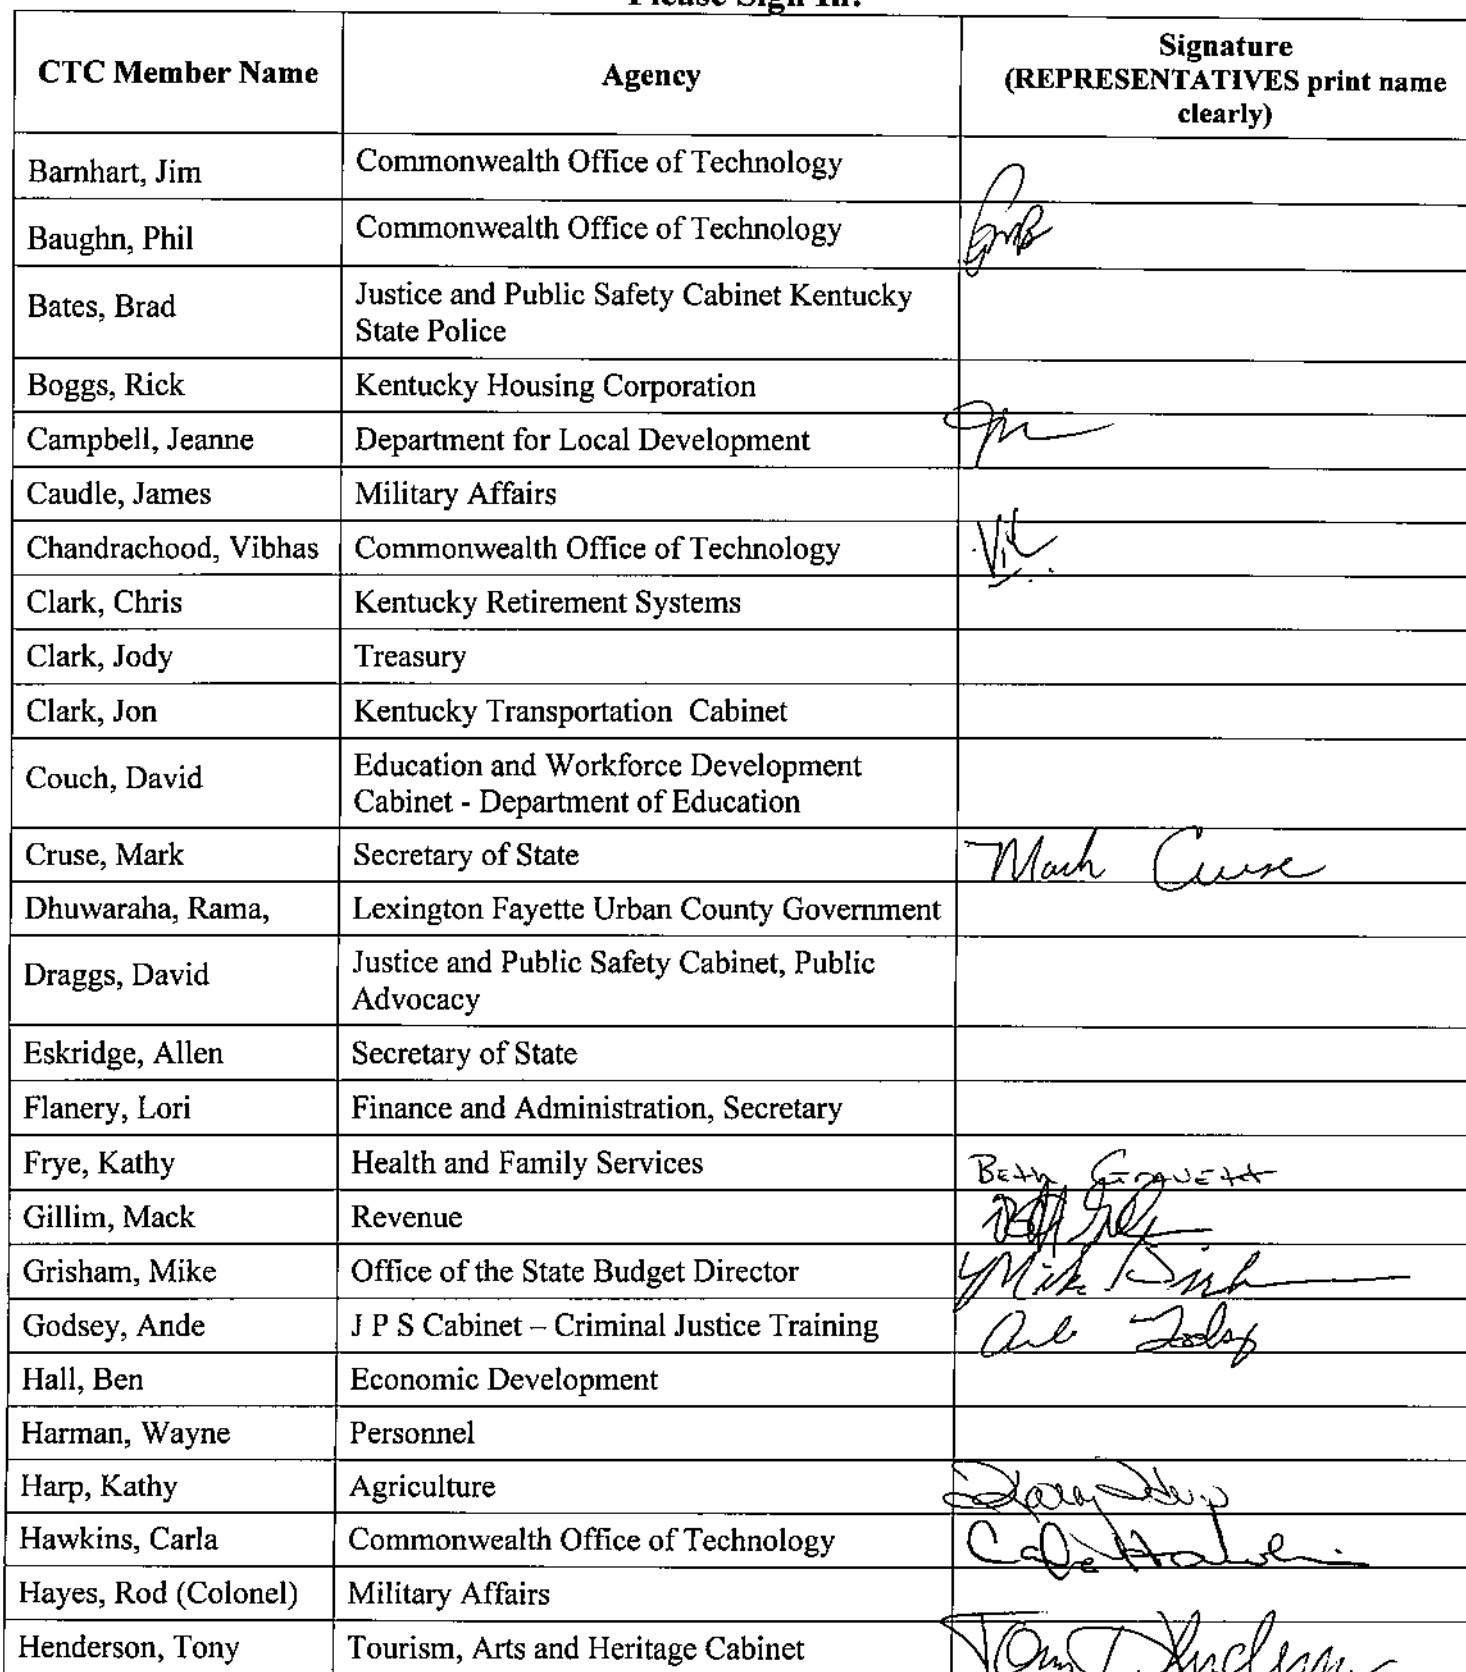 Please Sign In:
CTC Member Name
Agency
Signature
(REPRESENTATIVES print name
clearly)
Barnhart, Jim
Commonwealth Office of Technology
Baughn, Phil
Commonwealth Office of Technology
Bates, Brad
Justice and Public Safety Cabinet Kentucky
State Police
Boggs, Rick
Kentucky Housing Corporation
Campbell, Jeanne
Department for Local Development
Caudle, James
Military Affairs
Chandrachood, Vibhas
Commonwealth Office of Technology
Clark, Chris
Kentucky Retirement Systems
Clark, Jody
Treasury
Clark, Jon
Kentucky Transportation Cabinet
Couch, David
Education and Workforce Development
Cabinet - Department of Education
Cruse, Mark
Secretary of State
Mark Cruse
Dhuwaraha, Rama,
Lexington Fayette Urban County Government
Draggs, David
Justice and Public Safety Cabinet, Public
Advocacy
Eskridge, Allen
Secretary of State
Flanery, Lori
Finance and Administration, Secretary
Frye, Kathy
Health and Family Services
Beth Gravett
Gillim, Mack
Revenue
Grisham, Mike
Office of the State Budget Director
Mike Grisham
Godsey, Ande
J P S Cabinet – Criminal Justice Training
Ande Godsey
Hall, Ben
Economic Development
Harman, Wayne
Personnel
Harp, Kathy
Agriculture
Hawkins, Carla
Commonwealth Office of Technology
Carla Hawkins
Hayes, Rod (Colonel)
Military Affairs
Henderson, Tony
Tourism, Arts and Heritage Cabinet
Tony Henderson